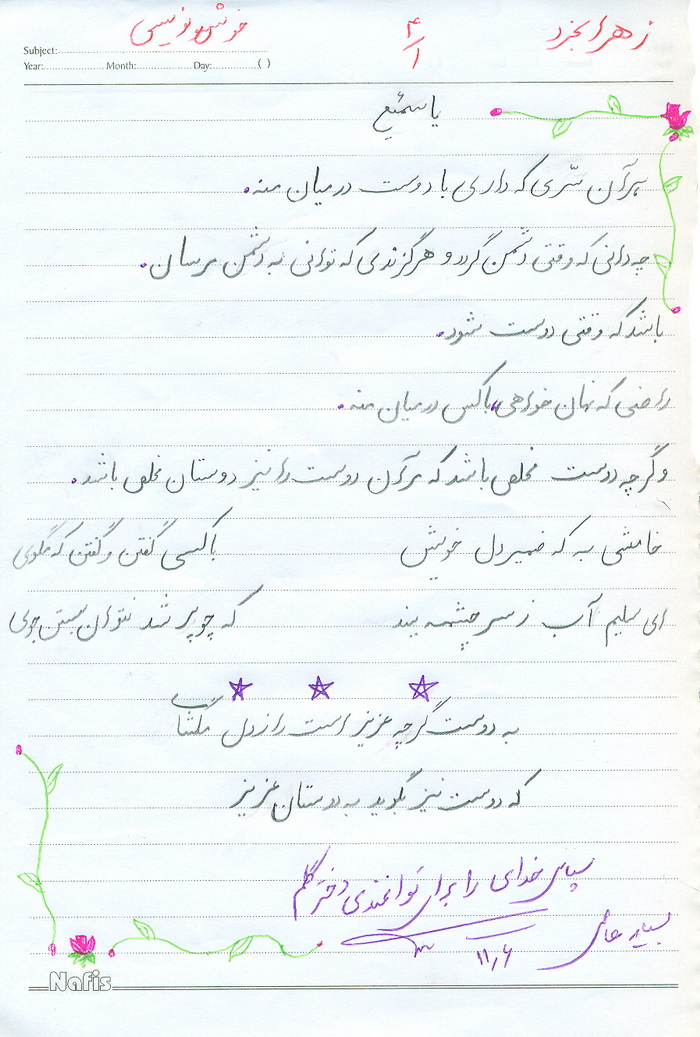 زهرا بخرد
۴/۱
خوش نویسی
Subject:
Year: Month: Day: ( )
یا سمیع
هر آن سّری که داری با دوست در میان منه.
چه دانی که وقتی دشمن گردد و هر گزندی که توانی به دشمن مرسان.
باشد که وقتی دوست شود.
رازی که نهان خواهی، با کس در میان منه.
وگرچه دوست مخلص باشد که مر آن دوست را نیز دوستان مخلص باشد.
خامشی به که ضمیر دل خویش
با کسی گفتن و گفتن که مگوی
ای سلیم آب ز سر چشمه ببند
که چو پر شد نتوان بستن جوی
به دوست گرچه عزیز است راز دل مگشا
که دوست نیز بگوید به دوستان عزیز
سپاس خدای را برای توانمندی دختر گلم
بسیار عالی
۱۱/۶
Nafis